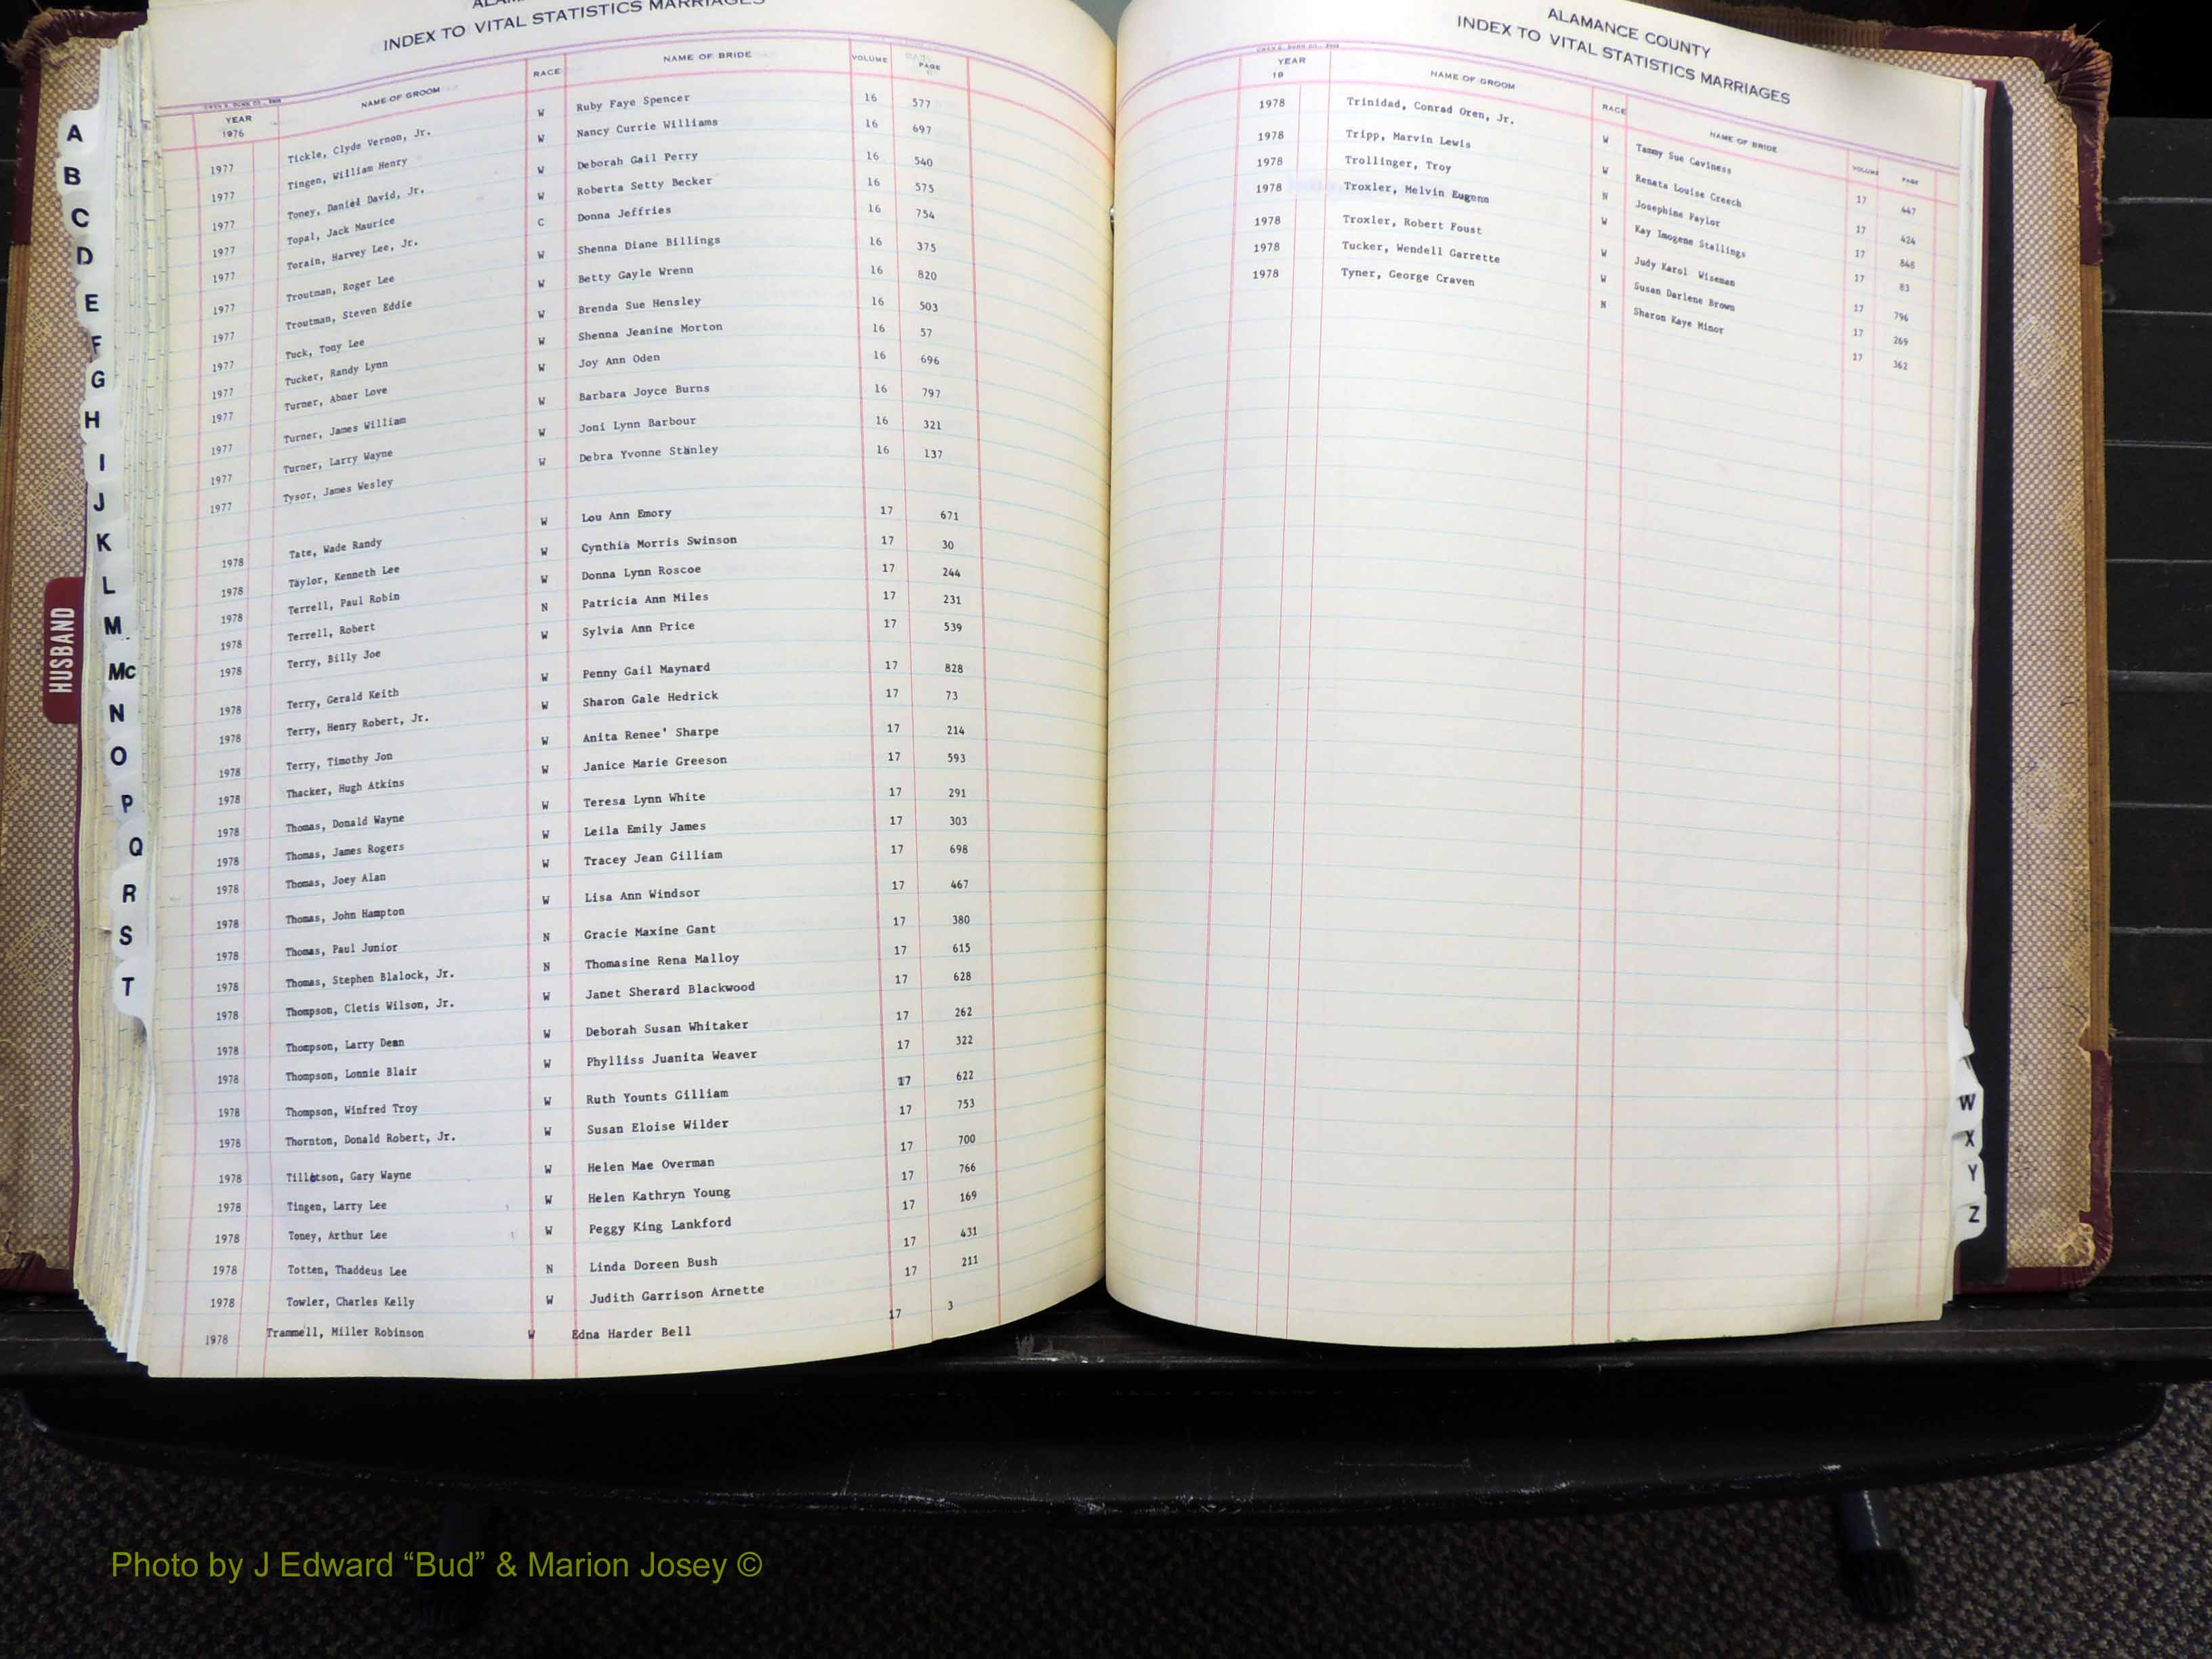 INDEX TO VITAL STATISTICS MARRIAGES
YEAR NAME OF GROOM RACE NAME OF BRIDE VOLUME PAGE
1976
1977 Tickle, Clyde Vernon, Jr. W Ruby Faye Spencer 16 577
1977 Tingen, William Henry W Nancy Currie Williams 16 697
1977 Toney, Daniel David, Jr. W Deborah Gail Perry 16 540
1977 Topal, Jack Maurice W Roberta Setty Becker 16 575
1977 Torain, Harvey Lee, Jr. C Donna Jeffries 16 754
1977 Troutman, Roger Lee W Shenna Diane Billings 16 375
1977 Troutman, Steven Eddie W Betty Gayle Wrenn 16 820
1977 Tuck, Tony Lee W Brenda Sue Hensley 16 503
1977 Tucker, Randy Lynn W Shenna Jeanine Morton 16 57
1977 Turner, Abner Love W Joy Ann Oden 16 696
1977 Turner, James William W Barbara Joyce Burns 16 797
1977 Turner, Larry Wayne W Joni Lynn Barbour 16 321
1977 Tysor, James Wesley W Debra Yvonne Stanley 16 137
1978 Tate, Wade Randy W Lou Ann Emory 17 671
1978 Taylor, Kenneth Lee W Cynthia Morris Swinson 17 30
1978 Terrell, Paul Robin W Donna Lynn Roscoe 17 244
1978 Terrell, Robert N Patricia Ann Miles 17 231
1978 Terry, Billy Joe W Sylvia Ann Price 17 539
1978 Terry, Gerald Keith W Penny Gail Maynard 17 828
1978 Terry, Henry Robert, Jr. W Sharon Gale Hedrick 17 73
1978 Terry, Timothy Jon W Anita Renee' Sharpe 17 214
1978 Thacker, Hugh Atkins W Janice Marie Greeson 17 593
1978 Thomas, Donald Wayne W Teresa Lynn White 17 291
1978 Thomas, James Rogers W Leila Emily James 17 303
1978 Thomas, Joey Alan W Tracey Jean Gilliam 17 698
1978 Thomas, John Hampton W Lisa Ann Windsor 17 467
1978 Thomas, Paul Junior N Gracie Maxine Gant 17 380
1978 Thomas, Stephen Blalock, Jr. N Thomasine Rena Malloy 17 615
1978 Thompson, Cletis Wilson, Jr. W Janet Sherard Blackwood 17 628
1978 Thompson, Larry Dean W Deborah Susan Whitaker 17 262
1978 Thompson, Lonnie Blair W Phylliss Juanita Weaver 17 322
1978 Thompson, Winfred Troy W Ruth Younts Gilliam 17 622
1978 Thornton, Donald Robert, Jr. W Susan Eloise Wilder 17 753
1978 Tillotson, Gary Wayne W Helen Mae Overman 17 700
1978 Tingen, Larry Lee W Helen Kathryn Young 17 766
1978 Toney, Arthur Lee W Peggy King Lankford 17 169
1978 Totten, Thaddeus Lee N Linda Doreen Bush 17 431
1978 Towler, Charles Kelly W Judith Garrison Arnette 17 211
1978 Trammell, Miller Robinson W Edna Harder Bell 17 3
A
B
C
D
E
F
G
H
I
J
K
L
M
Mc
N
O
P
Q
R
S
T
HUSBAND
ALAMANCE COUNTY
INDEX TO VITAL STATISTICS MARRIAGES
YEAR NAME OF GROOM RACE NAME OF BRIDE VOLUME PAGE
19
1978 Trinidad, Conrad Oren, Jr. W Tammy Sue Caviness 17 447
1978 Tripp, Marvin Lewis W Renata Louise Creech 17 424
1978 Trollinger, Troy N Josephine Paylor 17 848
1978 Troxler, Melvin Eugene W Kay Imogene Stallings 17 83
1978 Troxler, Robert Foust W Judy Karol Wiseman 17 796
1978 Tucker, Wendell Garrette W Susan Darlene Brown 17 269
1978 Tyner, George Craven N Sharon Kaye Minor 17 362
W
X
Y
Z
Photo by J Edward “Bud” & Marion Josey ©